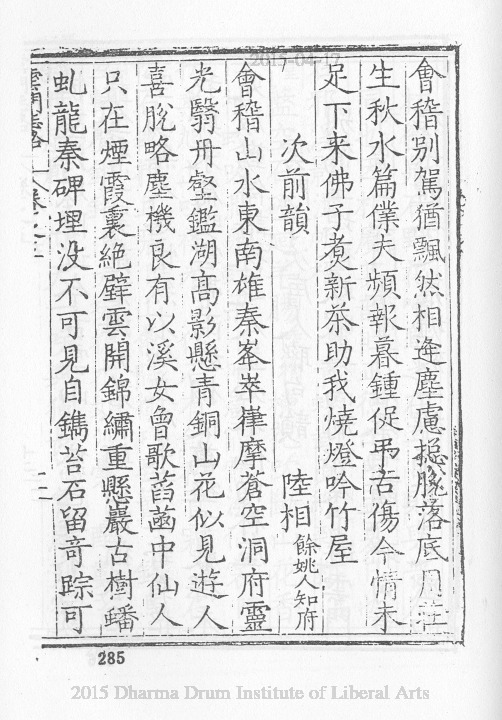 會稽别駕猶飄然相逢塵慮揔脫落底月在
生秋水篇僕夫頻報暮鍾促弔古傷今情未
足下来佛子煑新茶助我燒燈吟竹屋
次前韻 陸相餘姚人知府
會稽山水東南雄秦峯崒嵂摩蒼空洞府靈
光翳丹壑鑑湖高影懸青銅山花似見遊人
喜脫略塵機良有以溪女曾歌菡萏中仙人
只在煙霞裏絶壁雲開錦繡重懸巖古樹蟠
虬龍秦碑埋没不可見自鐫苔石留竒踪可
雲門志略
285
2015 Dharma Drum Institute of Liberal Arts